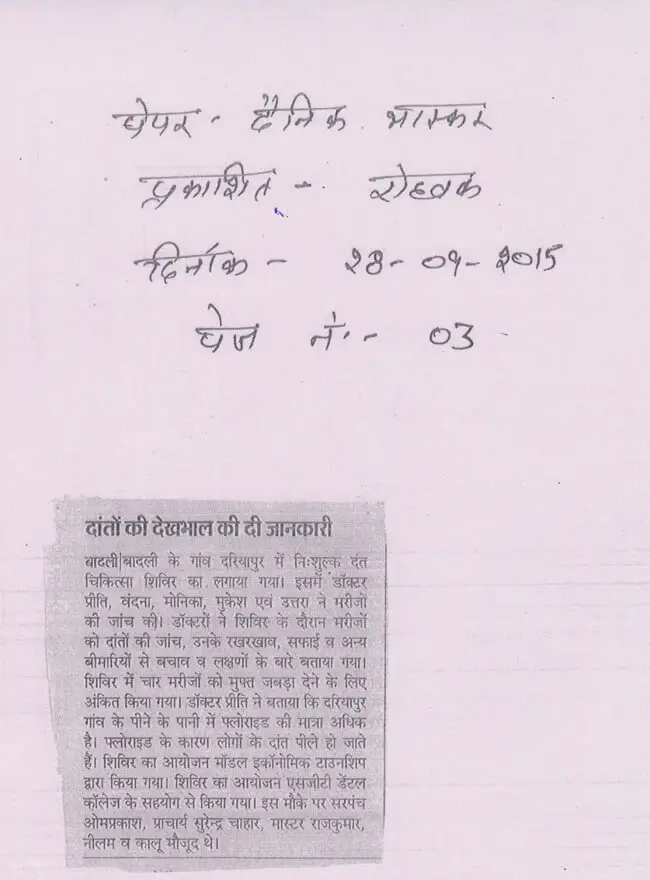 पेपर - दैनिक भास्कर
प्रकाशित - रोहतक
दिनांक - 23-09-2015
पेज नं. - 03
दांतों की देखभाल की दी जानकारी
बादली|बादली के गांव दरियापुर में निःशुल्क दंत
चिकित्सा शिविर का लगाया गया। इसमें डॉक्टर
प्रीति, वंदना, मोनिका, मुकेश एवं उत्तरा ने मरीजों
की जांच की। डॉक्टरों ने शिविर के दौरान मरीजों
को दांतों की जांच, उनके रखरखाव, सफाई व अन्य
बीमारियों से बचाव व लक्षणों के बारे बताया गया।
शिविर में चार मरीजों को मुफ्त जबड़ा देने के लिए
अंकित किया गया। डॉक्टर प्रीति ने बताया कि दरियापुर
गांव के पीने के पानी में फ्लोराइड की मात्रा अधिक
है। फ्लोराइड के कारण लोगों के दांत पीले हो जाते
हैं। शिविर का आयोजन मॉडल इकॉनोमिक टाउनशिप
द्वारा किया गया। शिविर का आयोजन एसजीटी डेंटल
कॉलेज के सहयोग से किया गया। इस मौके पर सरपंच
ओमप्रकाश, प्राचार्य सुरेन्द्र चाहार, मास्टर राजकुमार,
नीलम व कालू मौजूद थे।